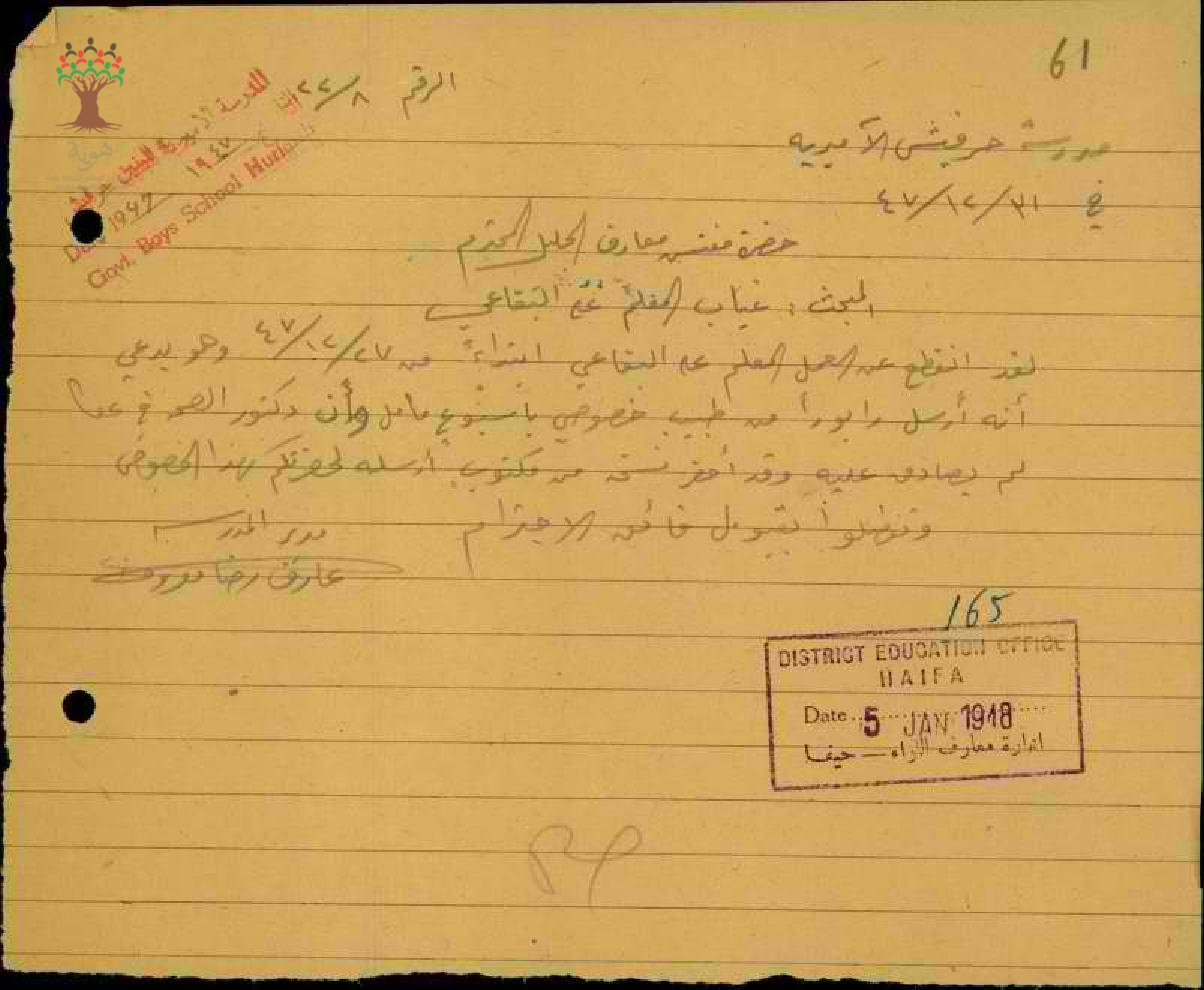 61
الرقم ٢٢/٨
المدرسة الأميرية للبنين حرفيش
١٩٤٧
Date 1947
Govt. Boys School Hurfeish
مدرسة حرفيش الآميريه
في ٤٧/١٢/٣١
حضرة مفتش معارف الجليل المحترم
المبحث : غياب المعلم علي البقاعي
لقد انقطع عن العمل المعلم علي البقاعي ابتداءً من ٤٧/١٢/٢٧ وهو يدعي
أنه أرسل رابوراً من طبيب خصوصي بأسبوع كامل وأن دكتور الصحة في عكا
لم يصادق عليه وقد أحضر نسخة من مكتوب أرسله لحضرتكم بهذا الخصوص
وتفضلوا بقبول فائق الاحترام
مدير المدرسة
عارف رضا
165
DISTRICT EDUCATION OFFICE
HAIFA
Date 5 JAN 1948
ادارة معارف اللواء — حيفا